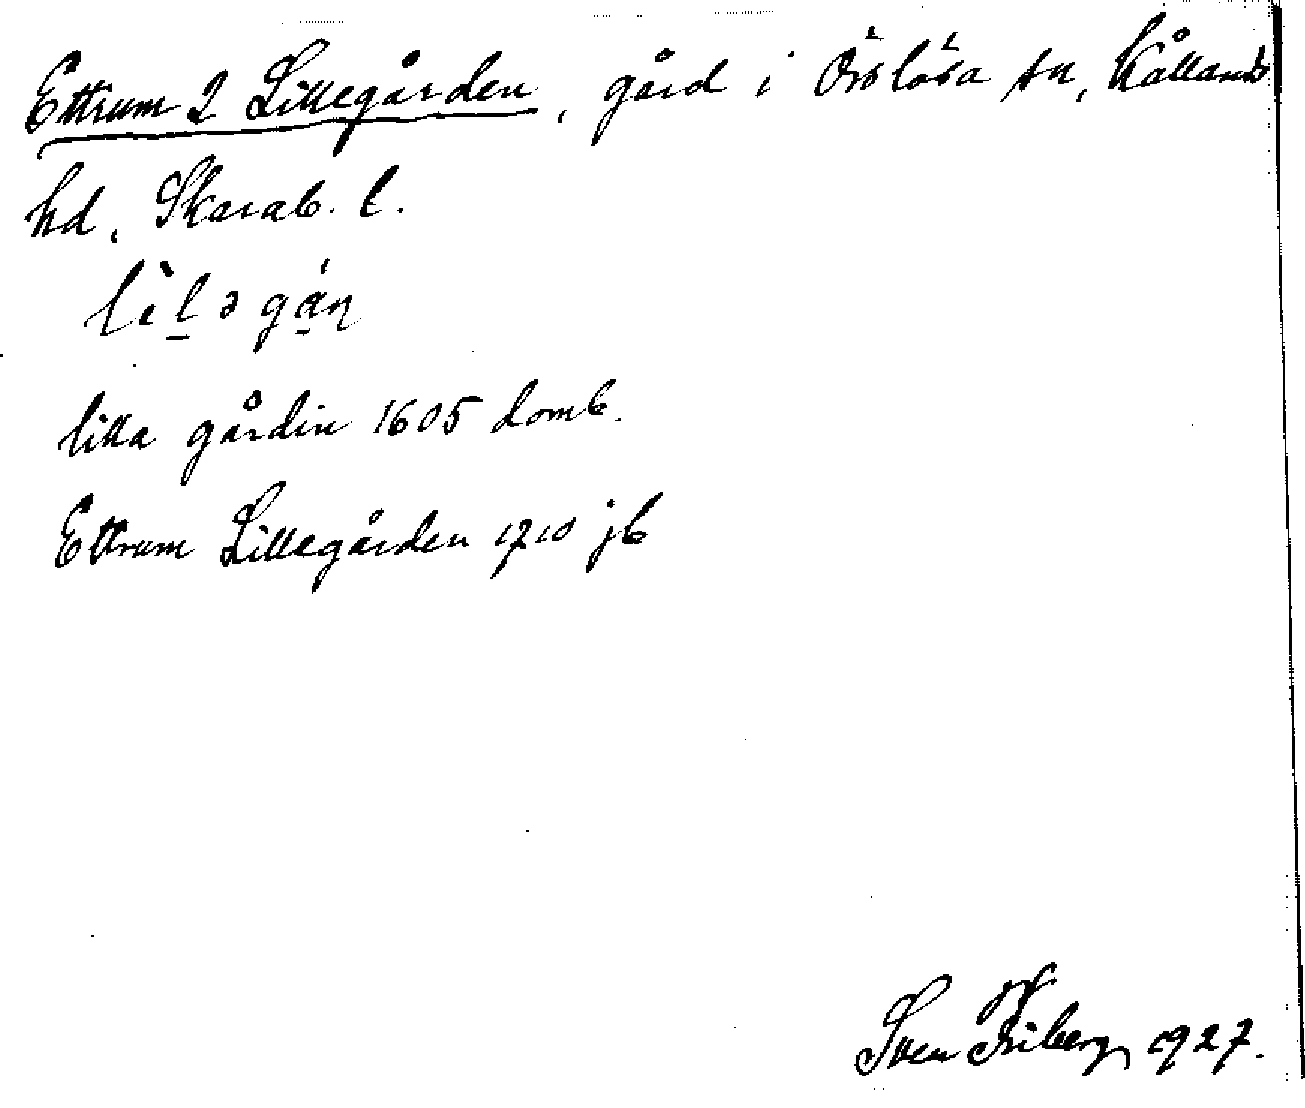 Ettrum 2 Lillegården, gård i Örslösa sn, Kållands
hd, Skarab. l.
lìl̠ə gá̠ɳ
lilla gårdin 1605 domb.
Ettrum Lillegården 1710 jb
Sven Friberg 1927.